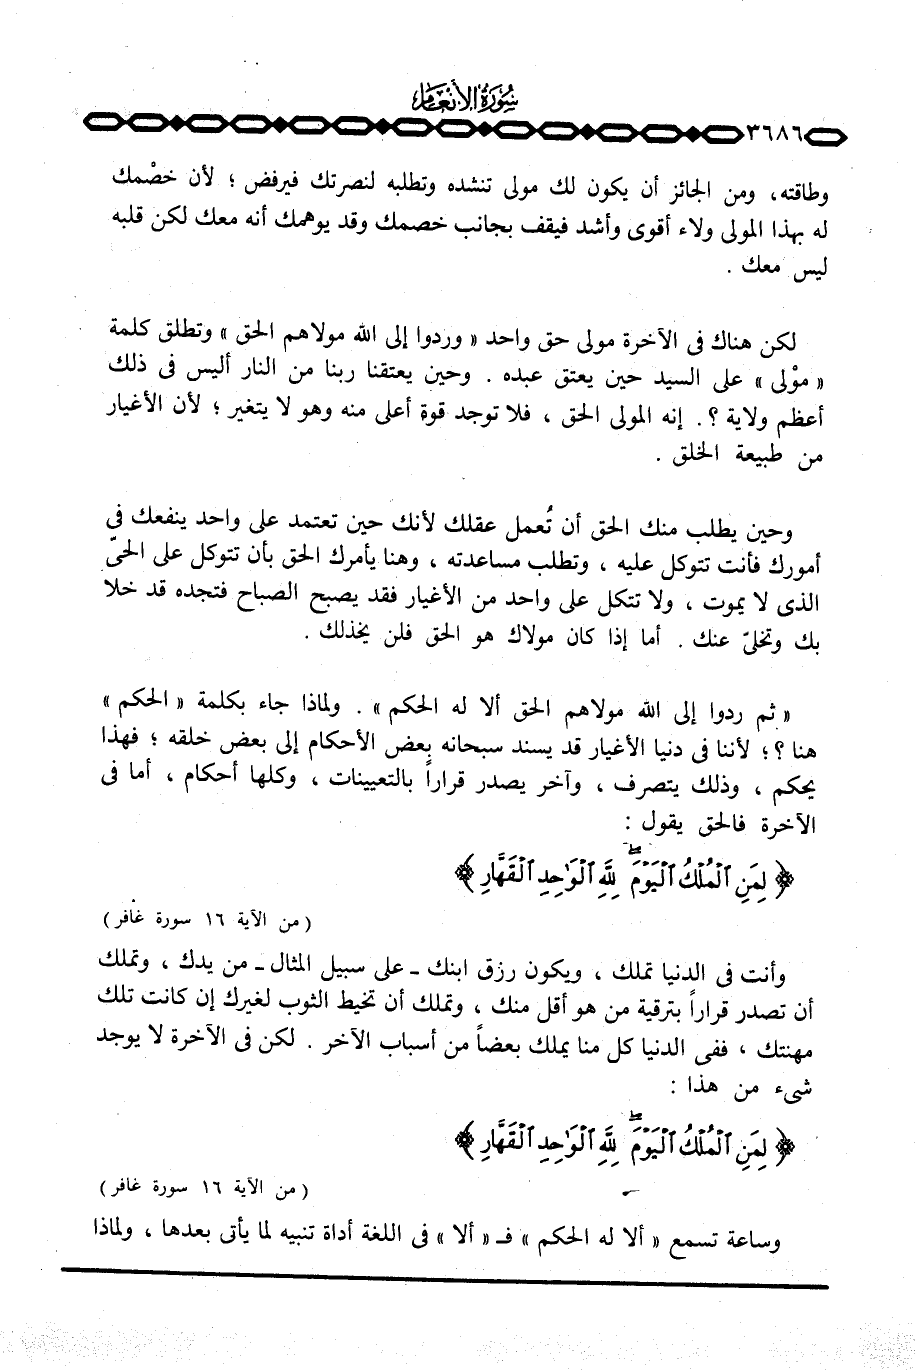 سورة الأنعام
٣٦٨٦
وطاقته، ومن الجائز أن يكون لك مولى تنشده وتطلبه لنصرتك فيرفض ؛ لأن خصْمك
له بهذا المولى ولاء أقوى وأشد فيقف بجانب خصمك وقد يوهمك أنه معك لكن قلبه
ليس معك .
لكن هناك فى الآخرة مولى حق واحد « وردوا إلى الله مولاهم الحق » وتطلق كلمة
« موْلى » على السيد حين يعتق عبده . وحين يعتقنا ربنا من النار أليس فى ذلك
أعظم ولاية ؟. إنه المولى الحق ، فلا توجد قوة أعلى منه وهو لا يتغير ؛ لأن الأغيار
من طبيعة الخلق .
وحين يطلب منك الحق أن تُعمل عقلك لأنك حين تعتمد على واحد ينفعك فى
أمورك فأنت تتوكل عليه ، وتطلب مساعدته ، وهنا يأمرك الحق بأن تتوكل على الحىّ
الذى لا يموت ، ولا تتكل على واحد من الأغيار فقد يصبح الصباح فتجده قد خلا
بك وتخلىّ عنك . أما إذا كان مولاك هو الحق فلن يخذلك .
« ثم ردوا إلى الله مولاهم الحق ألا له الحكم » . ولماذا جاء بكلمة « الحكم »
هنا ؟؛ لأننا فى دنيا الأغيار قد يسند سبحانه بعض الأحكام إلى بعض خلقه ؛ فهذا
يحكم ، وذلك يتصرف ، وآخر يصدر قراراً بالتعيينات ، وكلها أحكام ، أما فى
الآخرة فالحق يقول :
﴿ لِمَنِ ٱلْمُلْكُ ٱلْيَوْمَ ۖ لِلَّهِ ٱلْوَٰحِدِ ٱلْقَهَّارِ ﴾
( من الآية ١٦ سورة غافر )
وأنت فى الدنيا تملك ، ويكون رزق ابنك ـ على سبيل المثال ـ من يدك ، وتملك
أن تصدر قراراً بترقية من هو أقل منك ، وتملك أن تخيط الثوب لغيرك إن كانت تلك
مهنتك ، ففى الدنيا كل منا يملك بعضاً من أسباب الآخر . لكن فى الآخرة لا يوجد
شىء من هذا :
﴿ لِمَنِ ٱلْمُلْكُ ٱلْيَوْمَ ۖ لِلَّهِ ٱلْوَٰحِدِ ٱلْقَهَّارِ ﴾
( من الآية ١٦ سورة غافر )
وساعة تسمع « ألا له الحكم » فـ « ألا » فى اللغة أداة تنبيه لما يأتى بعدها ، ولماذا